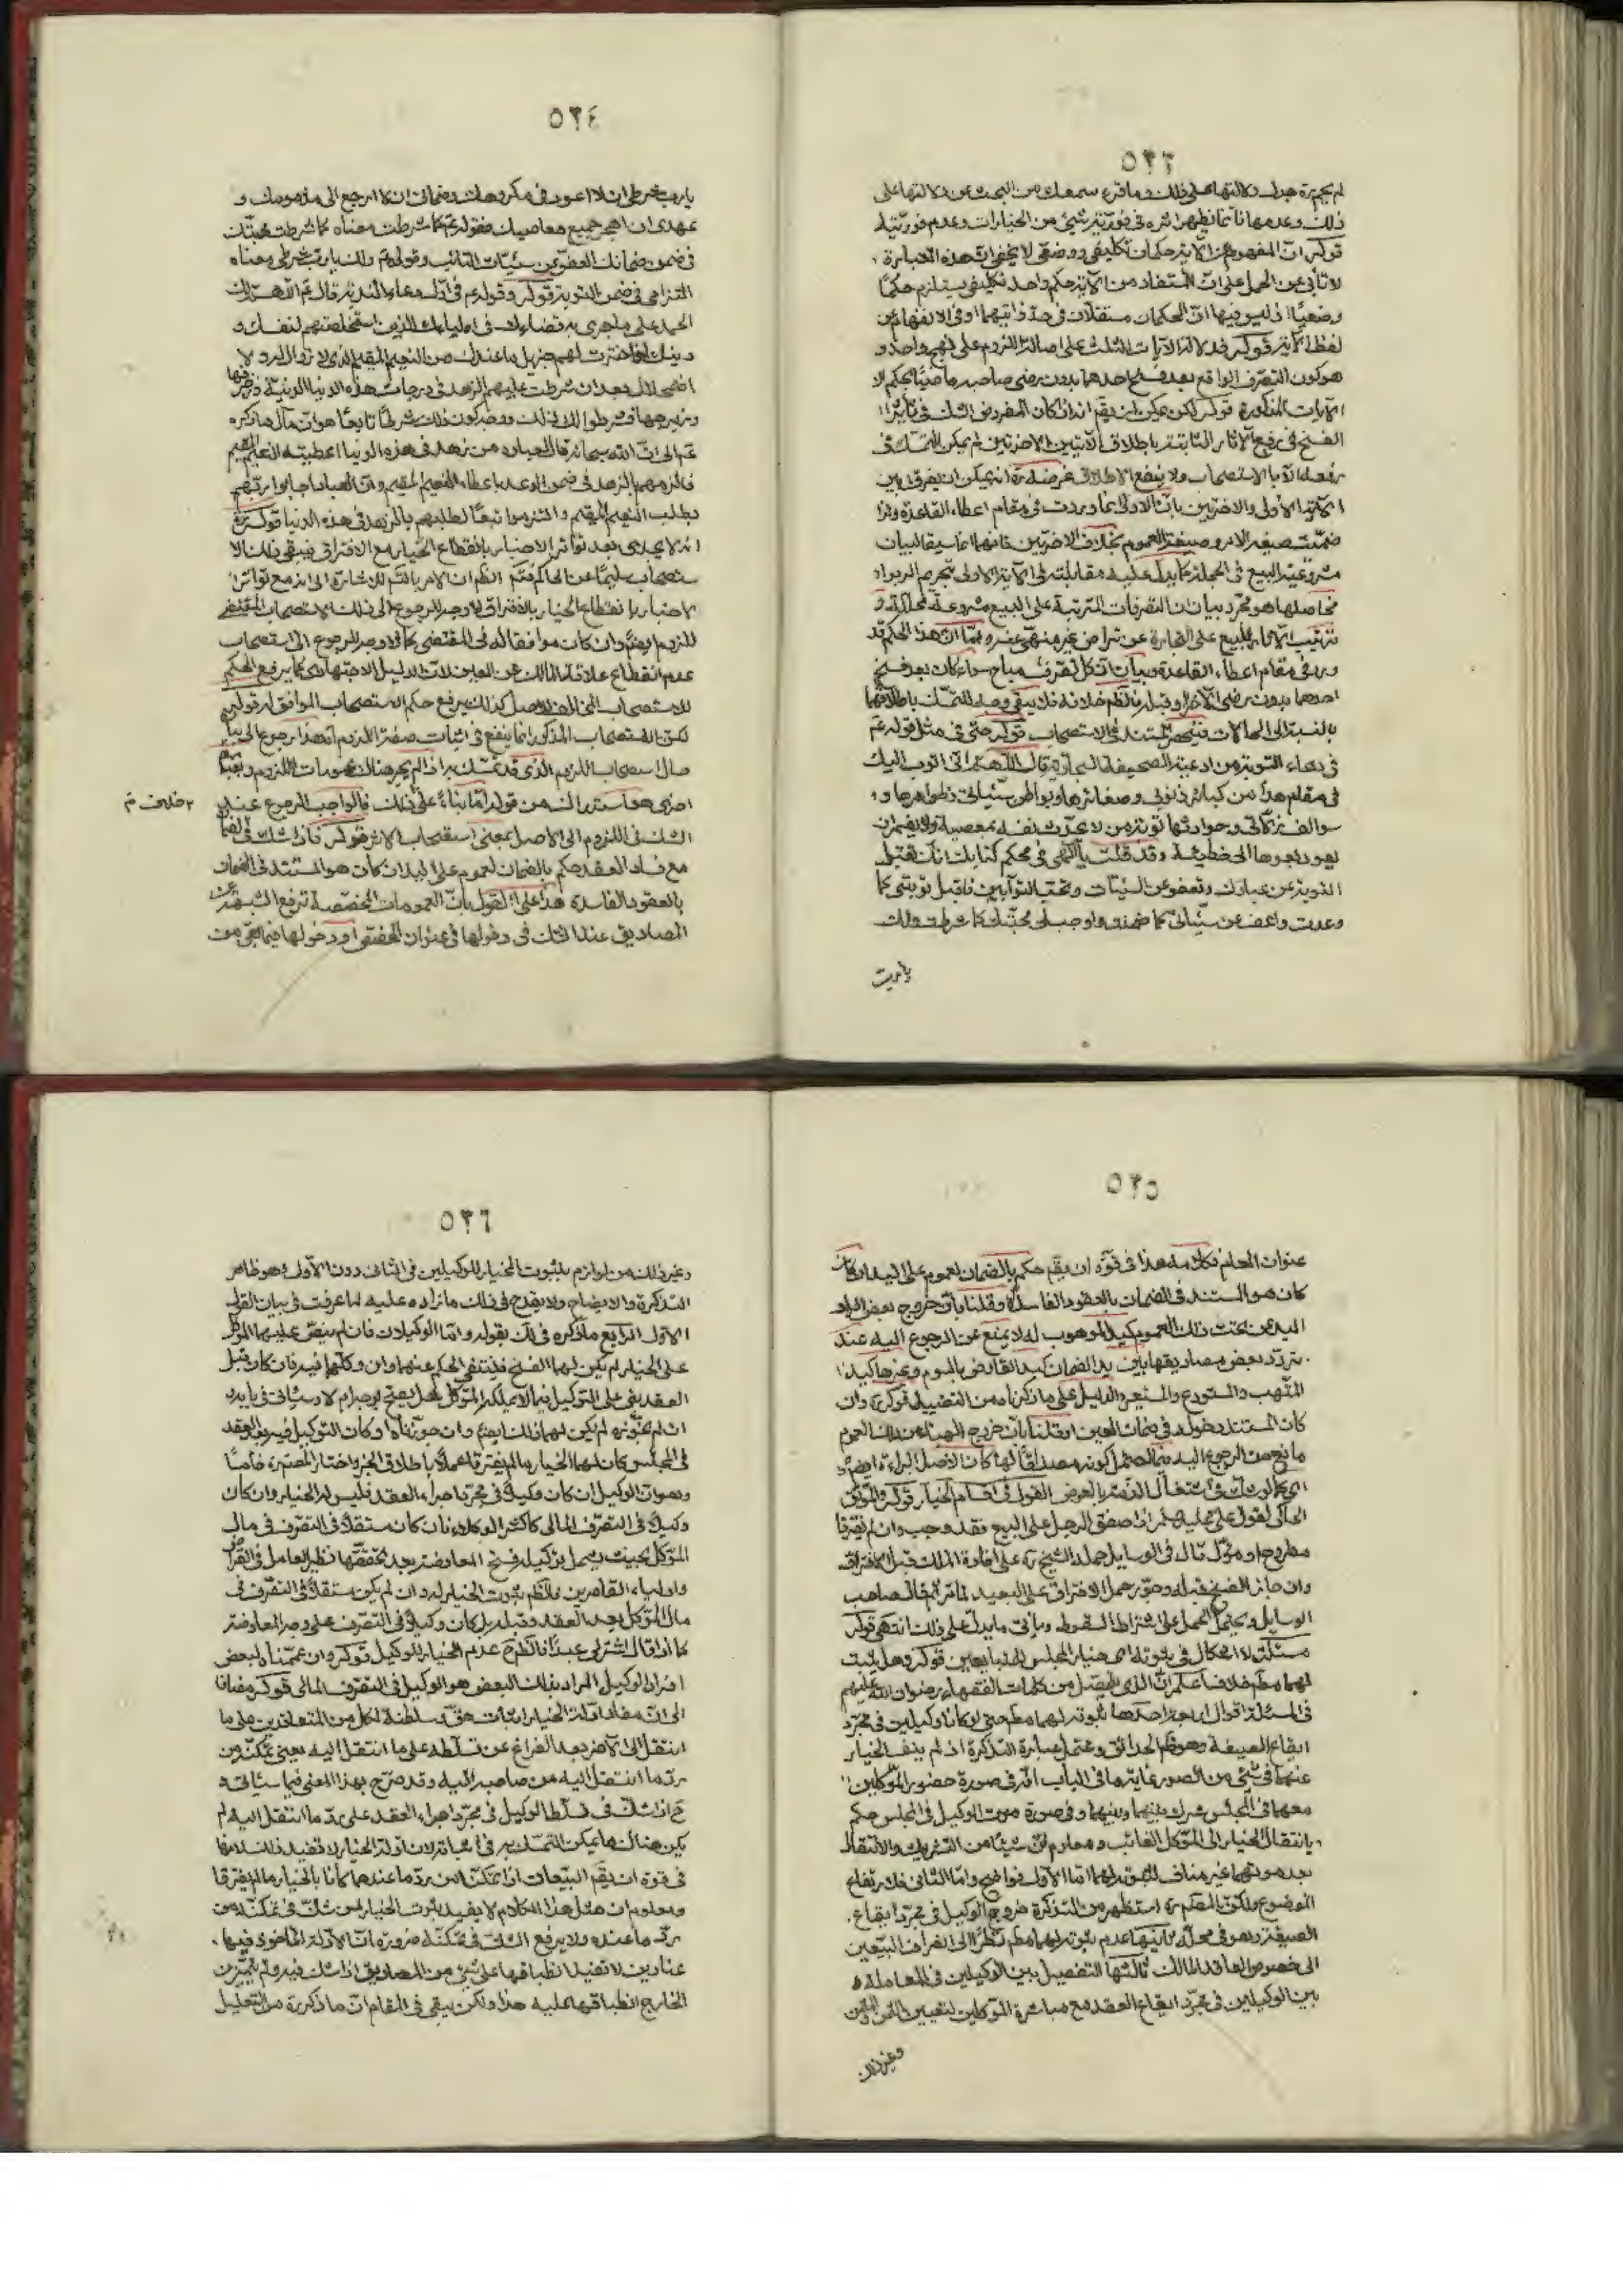 ٥٢٣
ذلك وعدمها انما يظهر اثره في فوريّة شيئ من الخيارات وعدم فوريّته
قوله انّ المفهوم من الآية حكمان تكليفي ووضعي لا يخفى انّ هذه العبارة
لا تأبى عن الحمل على انّ المستفاد من الآية حكم واحد تكليفي يستلزم حكمًا
لفظ الآية قوله فدلالة الآيات الثلث على اصالة اللزوم على نهج واحد و
هو كون التصرّف الواقع بعد فسخ احدهما بدون رضى صاحبه ماضيًا بحكم الا
الآيات المذكورة قوله لكن يمكن ان يقم انه اذا كان المفروض الشك في تأثير ا
الفسخ في رفع الآثار الثابتة باطلاق الآيتين الاخيرتين لم يمكن التمسّك في
رفعه الّا بالاستصحاب ولا ينفع الاطلاق
الآية الأولى والاخريين بانّ الاولى انما وردت في مقام اعطاء القاعدة ولذا
ورد في مقام اعطاء القاعدة وبيان انّ كل تصرف مباح سواء كان بعد فسخ
احدهما بدون رضى الآخر او قبله
بالنسبة الى الحالات فينحصر المستند في الاستصحاب قوله حتى في مثل قوله عم
في دعاء التوبة من ادعية الصحيفة السجادية قال اللّهم انّي اتوب اليك
في مقامي هذا من كبائر ذنوبي وصغائرها وبواطن سيّئاتي وظواهرها و
سوالف زلّاتي وحوادثها توبة من لا يحدّث نفسه بمعصية ولا يضمر ان
يعود بعدها الى خطيئة وقد قلت يا الٓهي في محكم كتابك انّك تقبل
التوبة عن عبادك وتعفو عن السيّئات وتحبّ التوّابين فاقبل توبتي كما
وعدت واعف عن سيّئاتي كما ضمنت واوجب لي محبّتك كما شرطت ولك
يا ربّ
٥٢٤
يا ربّ شرطي ان لا اعود في مكروهك وضماني ان لا ارجع الى مذمومك و
عهدي ان اهجر جميع معاصيك فقوله عم كما شرطت معناه كما شرطت محبّتك
في ضمن ضمانك العفو عن سيّئات التائب وقوله عم ولك يا ربّ شرطي معناه
التزامي في ضمن التوبة قوله وقوله عم في اوّل دعاء الندبة قال عم اللّهمّ لك
الحمد على ما جرى به قضاءك في اوليائك الذين استخلصتهم لنفسك و
دينك اذ اخترت لهم جزيل ما عندك من النعيم المقيم الذي لا زوال له ولا
اضمحلال بعد ان شرطت عليهم الزهد في درجات هذه الدنيا الدنيّة وزخرفها
وزبرجها فشرطوا لك ذلك ووجه كون ذلك شرطًا تابعًا هو انّ مآل ما ذكره
عم الى انّ اللّه سبحانه قال لعباده من زهد في هذه الدنيا اعطيته النعيم المقيم
فالزمهم بالزهد في ضمن الوعد باعطاء النعيم المقيم وانّ العباد اجابوا ربّهم
بطلب النعيم المقيم والتزموا تبعًا لطلبهم بالزهد في هذه الدنيا قوله
انه لا يجدى بعد تواتر الاخبار بانقطاع الخيار مع الافتراق فيبقى ذلك الا
الاخبار بانقطاع الخيار بالافتراق لا وجه للرجوع الى ذلك الاستصحاب المقتضى
للزوم ايضًا وان كان موافقا له في المقتضى كما لا وجه للرجوع الى استصحاب
عدم انقطاع علاقة المالك عن العين لانّ الدليل الاجتهادي كما يرفع الحكم
للاستصحاب المخالف للاصل كذلك يرفع حكم الاستصحاب الموافق له قوله
لكن الاستصحاب المذكور انما ينفع في اثبات صفة اللزوم
حال استصحاب اللزوم الذي قد تمسّك به اذا لم يجر هناك عمومات اللزوم
الشك في اللزوم الى الاصل بمعنى استصحاب الاثر قوله فاذا شك في الضمان
مع فساد العقد حكم بالضمان لعموم على اليد ان كان هو المستند في الضمان
بالعقود الفاسدة هذا على القول بانّ العمومات المخصّصة ترفع الشبهة عن
المصاديق عند الشك في دخولها في عنوان المخصّص او دخولها فيما بقي من
٥٢٥
عنوان العام فكلامه هذا في قوّة ان يقم حكم بالضمان لعموم على اليد ان كان
كان هو المستند في الضمان بالعقود الفاسدة وقلنا بانّ خروج بعض افراد
اليد من تحت ذلك العموم كيد الموهوب له لا يمنع عن الرجوع اليه عند
تردّد بعض مصاديقها بين يد الضمان كيد القابض بالسوم وغيرها كيد
المتّهب والمستودع والمستعير والدليل على ما ذكرناه من التفصيل قوله وان
كان المستند دخوله في ضمان العين او قلنا بانّ خروج الهبة من ذلك العموم
مانع من الرجوع اليه فيما احتمل كونه مصداقًا لها كان الاصل البراءة ايضًا
اي كما لو شك في اشتغال الذمّة بالعوض القول في اقسام الخيار قوله والموثّق
الحاكي لقول علي عليه السلام اذا صفق الرجل على البيع فقد وجب وان لم يفترقا
مطروح او مؤوّل قال في الوسايل حمله الشيخ ره على افادة الملك قبل الافتراق
وان جاز الفسخ قبله وجوّز حمل الافتراق على البعيد لما مرّ ثم قال صاحب
الوسايل ويحتمل الحمل على اشتراط السقوط ويأتي ما يدلّ على ذلك انتهى قوله
مسئلة لا اشكال في ثبوته اي خيار المجلس للمتبايعين قوله وهل يثبت
لهما مطم خلاف اعلم انّ الذي يتحصّل من كلمات الفقهاء رضوان اللّه عليهم
في المسئلة اقوال اربعة احدها ثبوته لهما مطم حتى لو كانا وكيلين في مجرّد
ايقاع الصيغة وهو ظ الحدائق ويحتمله عبارة التذكرة اذ لم ينف الخيار
عنهما في شيئ من الصور غاية ما في الباب انّه في صورة حضور الموكّلين
معهما في المجلس شرك بينهما وبينهما وفي صورة موت الوكيل في المجلس حكم
بانتقال الخيار الى الموكّل الغائب ومعلوم انّ شيئًا من التشريك والانتقال
بعد موتهما غير مناف لثبوته لهما امّا الأوّل فواضح وامّا الثاني فلارتفاع
الموضوع ولكن المصنّف ره استظهر من التذكرة خروج الوكيل في مجرّد ايقاع
الصيغة وهو في محلّه ثانيها عدم ثبوته لهما مطم نظرًا الى انصراف البيّعين
الى خصوص العاقد المالك ثالثها التفصيل بين الوكيلين في المعاملة و
بين الوكيلين في مجرّد ايقاع العقد مع مباشرة الموكّلين لتعيين الثمن والمثمن
وغير ذلك
٥٢٦
وغير ذلك من لوازم بثبوت الخيار للوكيلين في الثاني دون الأوّل وهو ظاهر
التذكرة والايضاح ولا يقدح في ذلك ما زاده عليه لما عرفت في بيان القول
الأوّل الرابع ما ذكره في لك بقوله وامّا الوكيلان فان لم ينصّ عليهما الموكّل
على الخيار لم يكن لهما الفسخ فينتفي الحكم عنهما وان وكّلهما فيه فان كان قبل
العقد بنى على التوكيل فيما لا يملكه الموكّل هل يصحّ بوجه ام لا وسيأتي في بابه
ان لم نجوّزه لم يكن لهما ذلك ايضًا وان جوّزناه او كان التوكيل فيه بعد العقد
في المجلس كان لهما الخيار ما لم يفترقا عملًا باطلاق الخبر واختار المصنّف ره خامسًا
وهو انّ الوكيل ان كان وكيلًا في مجرّد اجراء العقد فليس له الخيار وان كان
وكيلًا في التصرّف المالي كاكثر الوكلاء فان كان مستقلًّا في التصرّف في مال
الموكّل بحيث يشمل توكيله فسخ المعاوضة بعد تحقّقها نظير العامل في القراض
واولياء القاصرين فالظّم ثبوت الخيار له وان لم يكن مستقلًّا في التصرّف في
مال الموكّل بعد العقد وقبله بل كان وكيلًا في التصرّف على وجه المعاوضة
كما اذا قال اشتر لي عبدًا فالظّم ح عدم الخيار للوكيل قوله وان عمّمناه لبعض
افراد الوكيل المراد بذلك البعض هو الوكيل في التصرّف المالي قوله مضافا
الى انّ مفاد ادلّة الخيار اثبات حقّ وسلطنة لكل من المتعاقدين على ما
انتقل الى الآخر بعد الفراغ عن تسلّطه على ما انتقل اليه يعني تمكّنه من
ردّ ما انتقل اليه من صاحبه اليه وقد صرّح بهذا المعنى فيما سيأتي و
ح اذا شك في تسلّط الوكيل في مجرّد اجراء العقد على ردّ ما انتقل اليه لم
يكن هناك ما يمكن التمسّك به في اثباته لان ادلّة الخيار لا تفيد ذلك لانّها
في قوّة ان يقم البيّعان اذا تمكّنا من ردّ ما عندهما كانا بالخيار ما لم يفترقا
ومعلوم ان مثل هذا الكلام لا يفيد ثبوت الخيار لمن شك في تمكّنه من
ردّ ما عنده ولا يرفع الشك في تمكّنه ضرورة انّ الادلّة المأخوذ فيها
عناوين لا تفيد انطباقها على شيئ من المصاديق اذا شك فيه ولم يتميّز من
الخارج انطباقها عليه هذا ولكن يبقى في المقام انّ ما ذكره ره من التعليل